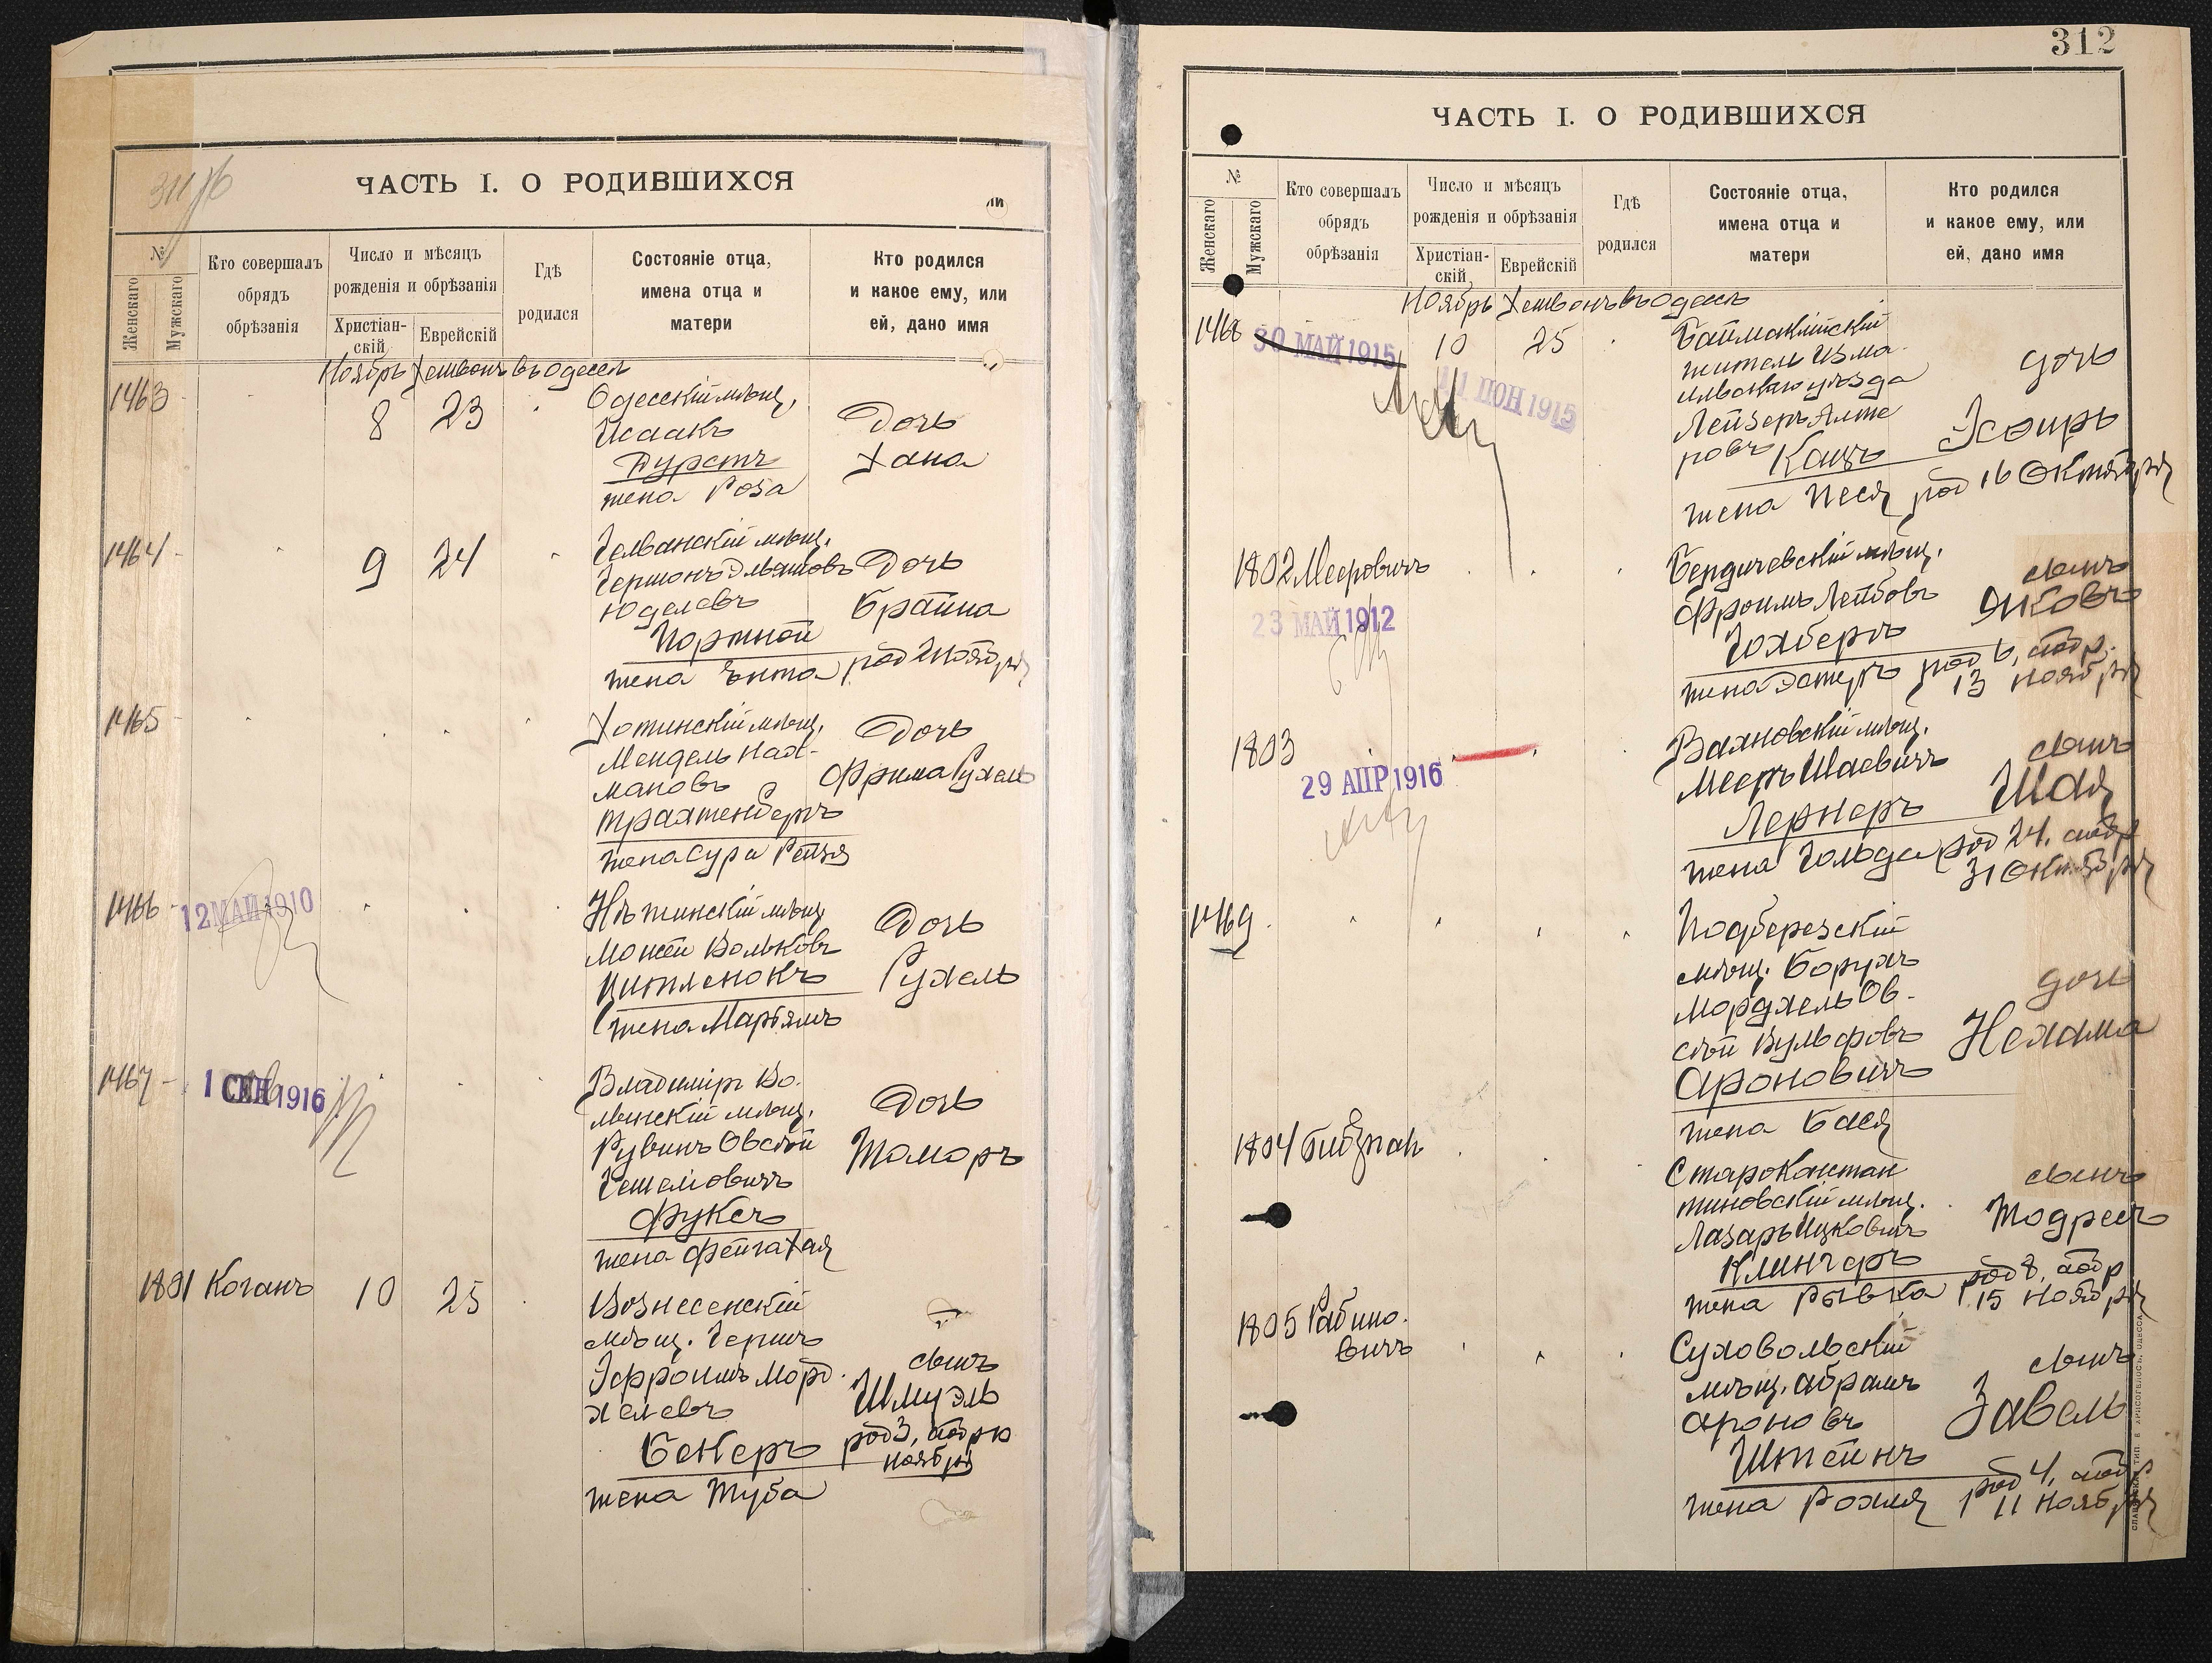 ЧАСТЬ I. О РОДИВШИХСЯ
№
Женскаго
Мужскаго
Кто совершалъ
обрядъ
обрѣзанія
Число и мѣсяцъ
рожденія и обрѣзанія
Христіан-
скій
Еврейскій
Гдѣ
родился
Состояніе отца,
имена отца и
матери
Кто родился
и какое ему, или
ей, дано имя
Ноябрь Хешвонъ въ Одессѣ
1463
8
23
Одесскій мѣщ.
Исаакъ
Дурстъ
жена Роза
Дочь
Хана
1464
9
24
мѣщ.
Юделевъ
Портной
жена Ента
Дочь
Брайна
род 2 Ноября
1465
Хотинскій мѣщ.
Мендель Нах-
мановъ
Трахтенбергъ
жена Сура Рейзя
Дочь
Фрима Рухель
1466
12 МАЙ 1910
Нѣжинскій мѣщ.
Мошей Вольковъ
Цитленокъ
жена Марьямъ
Дочь
Рухель
1467
1 СЕН 1916
Владимір Во-
лынскій мѣщ.
Рувинъ Овсей
Гешелiовичъ
Фуксъ
жена Фейга Хая
Дочь
Томоръ
1801
Коганъ
10
25
Вознесенскій
мѣщ. Герш
Эфроимъ Морд-
хелевъ
Бекеръ
жена Туба
сынъ
Шмуэль
род 3, обр 10
ноября
312
ЧАСТЬ I. О РОДИВШИХСЯ
№
Женскаго
Мужскаго
Кто совершалъ
обрядъ
обрѣзанія
Число и мѣсяцъ
рожденія и обрѣзанія
Христіан-
скій
Еврейскій
Гдѣ
родился
Состояніе отца,
имена отца и
матери
Кто родился
и какое ему, или
ей, дано имя
Ноябрь Хешвонъ въ Одессѣ
1468
30 МАЙ 1915
11 ІЮН 1915
10
25
Баймаклійскій
житель Изма-
ильскаго уѣзда
Лейзеръ Алте-
ровъ Кацъ
жена Песя
дочь
Эсѳирь
род 16 Октября
1802
Мееровичъ
23 МАЙ 1912
Бердичевскій мѣщ.
Фроимъ Лейбовъ
Гохбергъ
жена Эстеръ
сынъ
Янковъ
род 6, обр.
13 Ноября
1803
29 АПР 1916
Вахновскій мѣщ.
Мееръ Шаевичъ
Лернеръ
жена Гольда
сынъ
Шая
род 24, обр
31 Октября
1469
Подберезскій
мѣщ. Борухъ
Мордхель Ов-
сей Вульфовъ
Ароновичъ
жена Бася
дочь
Нехама
1804
Старокастан
тиновскій мѣщ.
Лазарь Ицковичъ
Клингеръ
жена Рывка
сынъ
Тодресъ
род 8, обр
15 Ноября
1805
Рабино-
вичъ
Суховольскій
мѣщ. Абрамъ
Ароновъ
Штейнъ
жена Рохля
сынъ
Завель
род 4, обр
11 Ноября